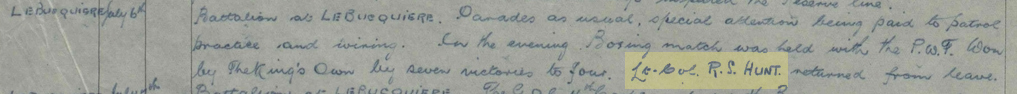 to inspected the reserve line.
LEBUCQUIERE July 6th Battalion at LEBUCQUIERE. Parades as usual, special attention being paid to patrol
practice and wiring. In the evening Boxing match was held with the P.W.F. Won
by The King's Own by seven victories to four. Lt-Col. R.S. HUNT returned from leave.
Battalion at LEBUCQUIERE. The G.O.C.